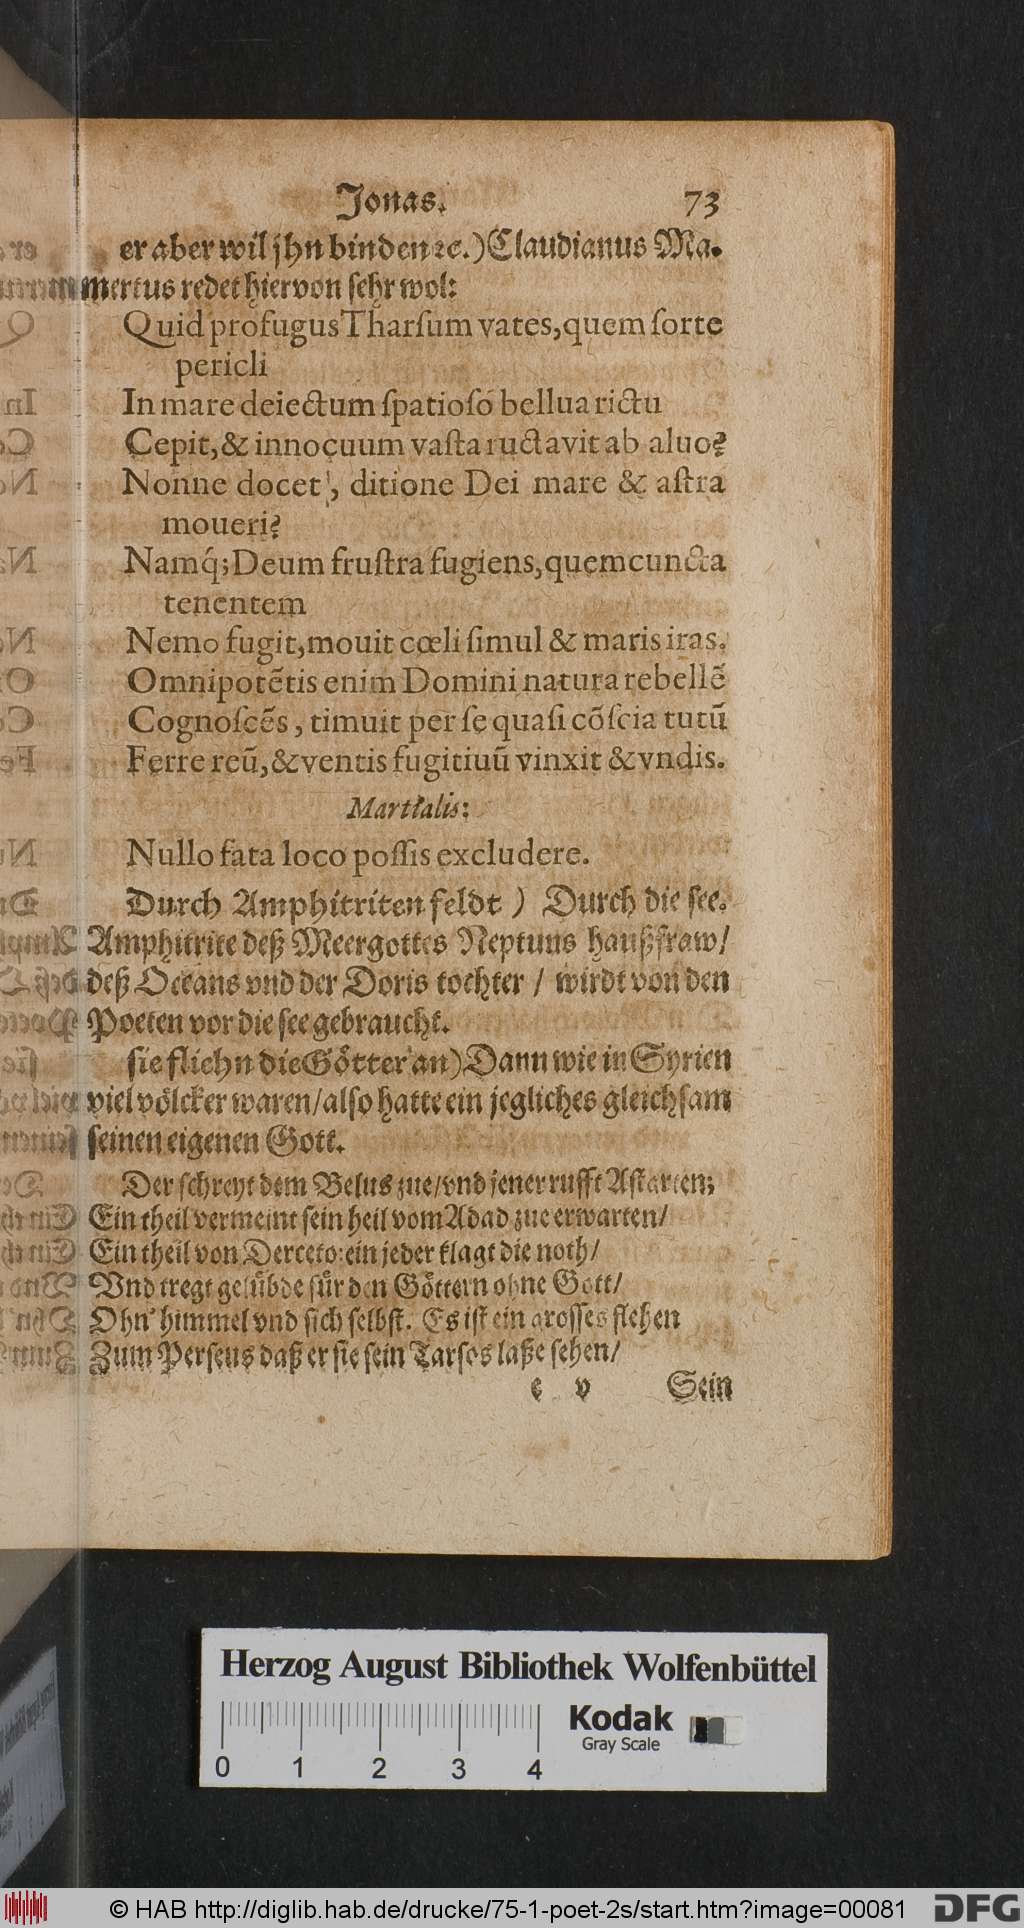 Jonas. 73
er aber wil jhn binden ꝛc.) Claudianus Ma-
mertus redet hiervon sehr wol:
Quid profugus Tharsum vates, quem sorte
pericli
In mare deiectum spatioso bellua rictu
Cepit, & innocuum vasta ructavit ab aluo?
Nonne docet, ditione Dei mare & astra
moueri?
Namq́; Deum frustra fugiens, quem cuncta
tenentem
Nemo fugit, mouit cœli simul & maris iras.
Omnipotẽtis enim Domini natura rebellẽ
Cognoscẽs, timuit per se quasi cõscia tutũ
Ferre reũ, & ventis fugitiuũ vinxit & vndis.
Martialis:
Nullo fata loco possis excludere.
Durch Amphitriten feldt ) Durch die see.
Amphitrite deß Meergottes Neptuns haußfraw/
deß Oceans vnd der Doris tochter / wirdt von den
Poeten vor die see gebraucht.
sie fliehn die Götter an) Dann wie in Syrien
viel völcker waren/also hatte ein jegliches gleichsam
seinen eigenen Gott.
Der schreyt dem Belus zue/vnd jener rufft Astarten;
Ein theil vermeint sein heil vom Adad zue erwarten/
Ein theil von Derceto: ein jeder klagt die noth/
Vnd tregt gelübde für den Göttern ohne Gott/
Ohn' himmel vnd sich selbst. Es ist ein grosses flehen
Zum Perseus daß er sie sein Tarsos laße sehen/
e v Sein
Herzog August Bibliothek Wolfenbüttel
Kodak
Gray Scale
0 1 2 3 4
© HAB http://diglib.hab.de/drucke/75-1-poet-2s/start.htm?image=00081
DFG